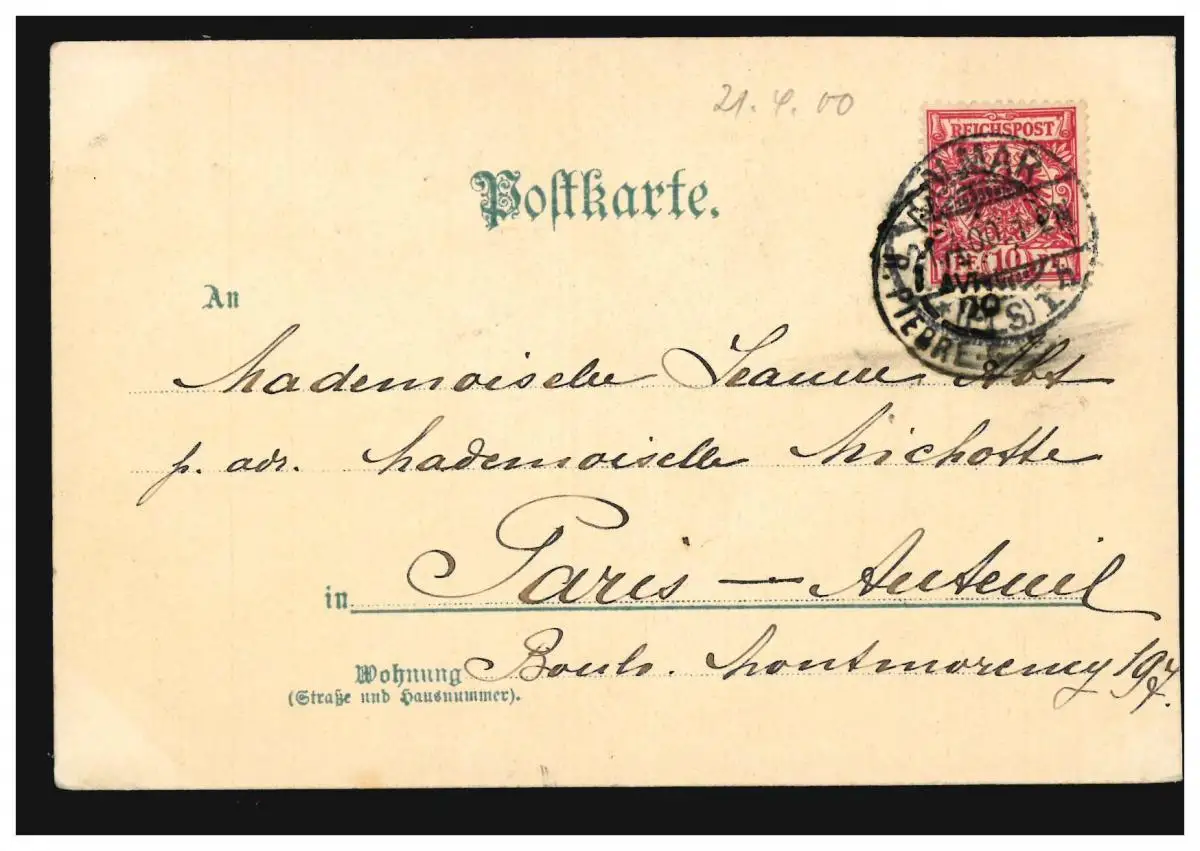 21. 4. 00
REICHSPOST
Postkarte.
10
R. PIERRE
An
Mademoiselle Jeanne Abt
p. adr. Mademoiselle Michotte
in Paris — Auteuil
Wohnung Boulv. Montmorency
(Straße und Hausnummer).